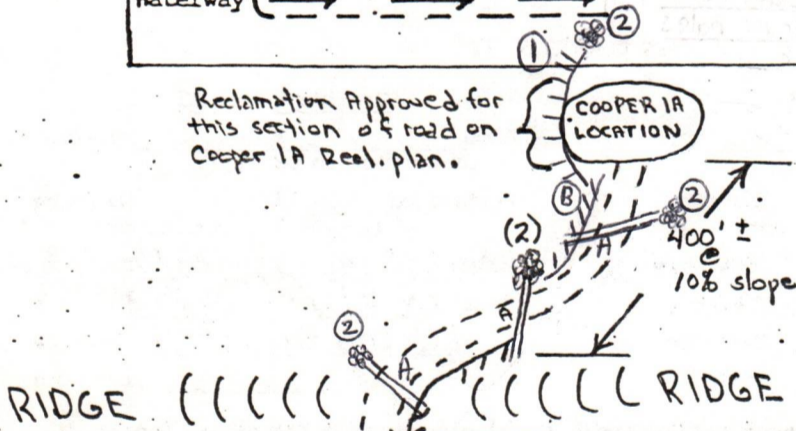 Waterway
2
1
Reclamation Approved for
this section of road on
Cooper 1A Recl. plan.
COOPER 1A
LOCATION
B
2
(2)
A
400' ±
@
10% slope
A
2
A
RIDGE
RIDGE